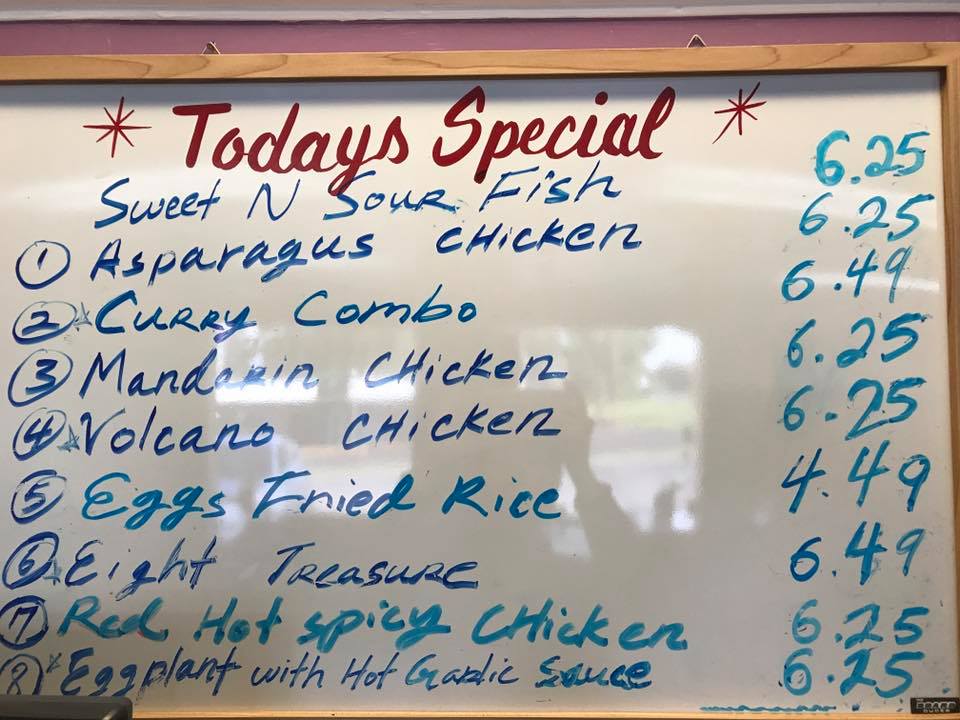 Todays Special
Sweet N Sour Fish 6.25
1 Asparagus CHicken 6.25
2 *Curry Combo 6.49
3 Mandarin CHicken 6.25
4 *Volcano CHicken 6.25
5 Eggs Fried Rice 4.49
6 *Eight Treasure 6.49
7 Red Hot spicy CHicken 6.25
8 *Eggplant with Hot Garlic Sauce 6.25